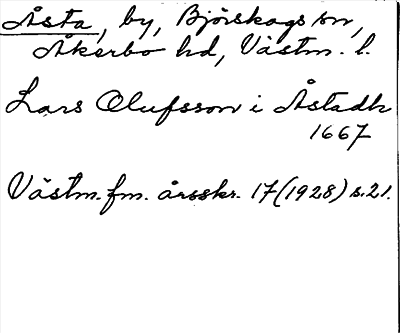 Åsta, by, Björskogs sn,
Åkerbo hd, Västm. l.
Lars Olufsson i Åstadh
1667
Västm. fm. årsskr. 17 (1928) s. 21.